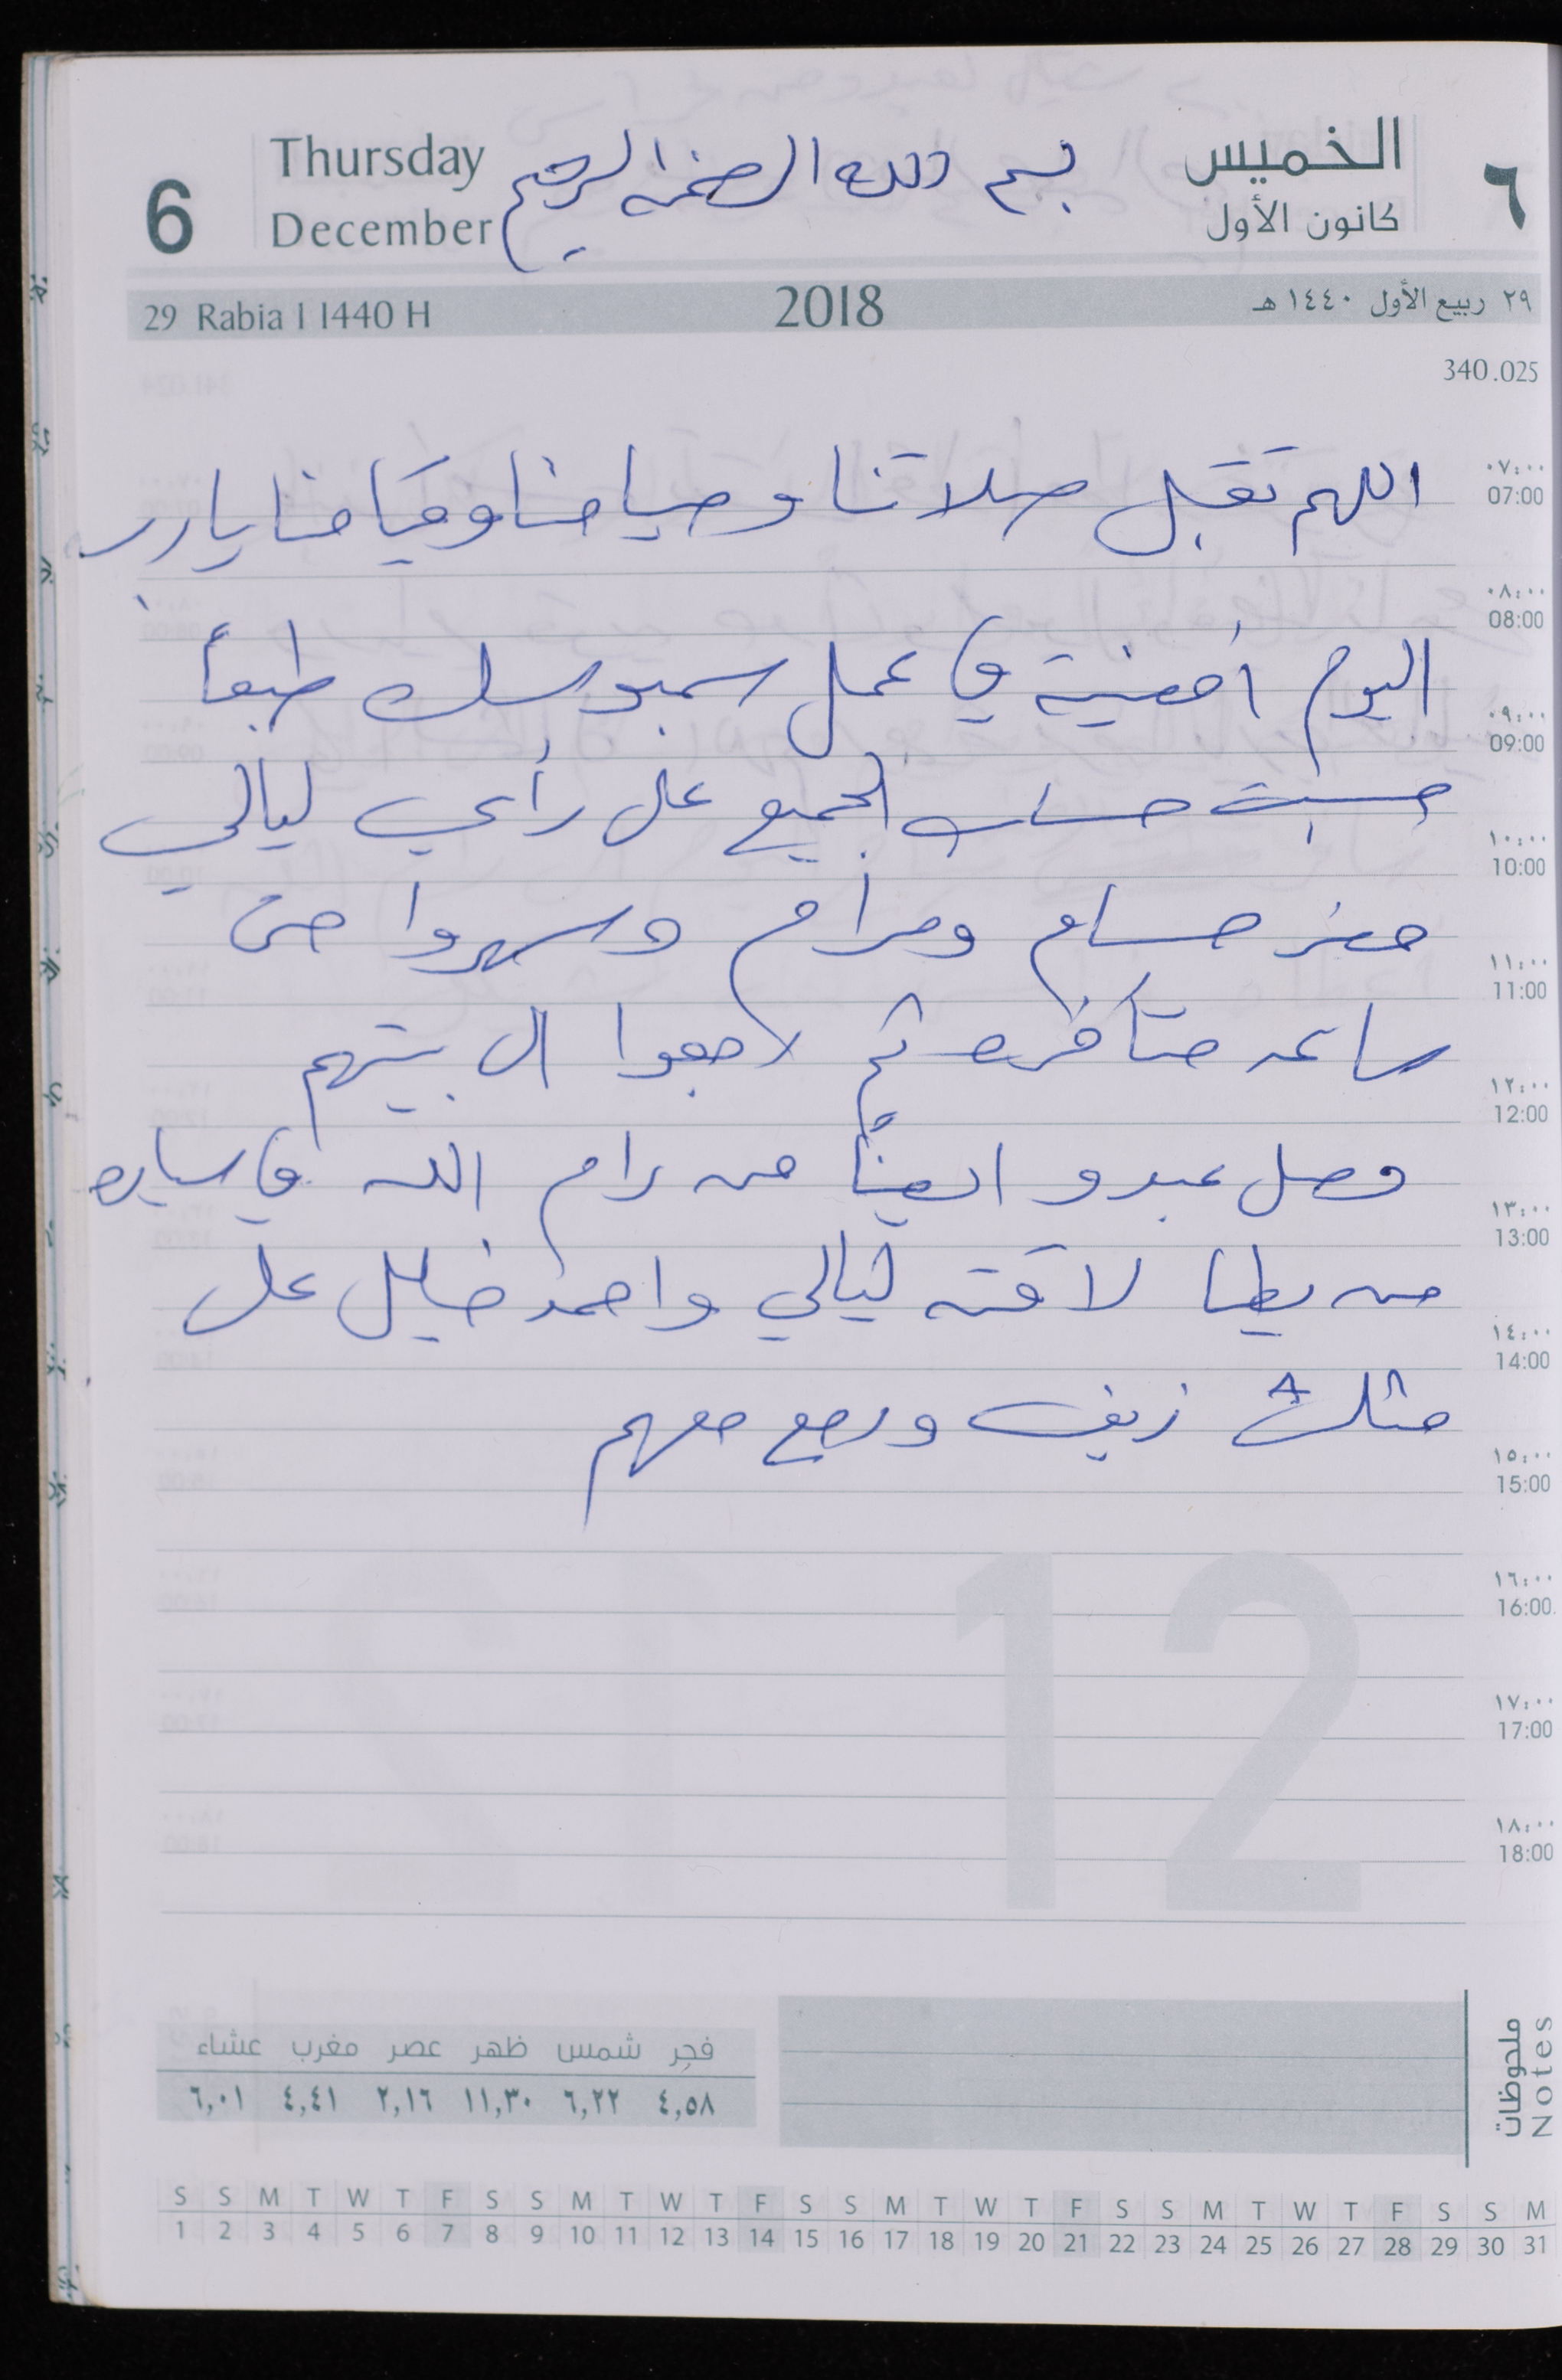 6
Thursday
December
بسم الله الرحمن الرحيم
الخميس
كانون الأول
٦
29 Rabia I 1440 H
2018
٢٩ ربيع الأول ١٤٤٠ هـ
340.025
اللهم تقبل صلاتنا وصيامنا وقيامنا يارب
٠٧:٠٠
07:00
٠٨:٠٠
08:00
اليوم أمضيته في عمل سمبوسك طبعاً
٠٩:٠٠
09:00
حسبت حساب الجميع على رأي ليالي
١٠:٠٠
10:00
حضر حسام ومرام وسهروا حتى
١١:٠٠
11:00
ساعه متأخره ثم رجعوا الى بيتهم
١٢:٠٠
12:00
وصل عبدو ايضاً من رام الله في سياره
١٣:٠٠
13:00
من يطا لاقته ليالي واحمد خليل على
١٤:٠٠
14:00
مثلث زيف ورجع معهم
١٥:٠٠
15:00
١٦:٠٠
16:00
١٧:٠٠
17:00
١٨:٠٠
18:00
12
فجر شمس ظهر عصر مغرب عشاء
٤,٥٨ ٦,٢٢ ١١,٣٠ ٢,١٦ ٤,٤١ ٦,٠١
ملحوظات
Notes
S S M T W T F S S M T W T F S S M T W T F S S M T W T F S S M
1 2 3 4 5 6 7 8 9 10 11 12 13 14 15 16 17 18 19 20 21 22 23 24 25 26 27 28 29 30 31